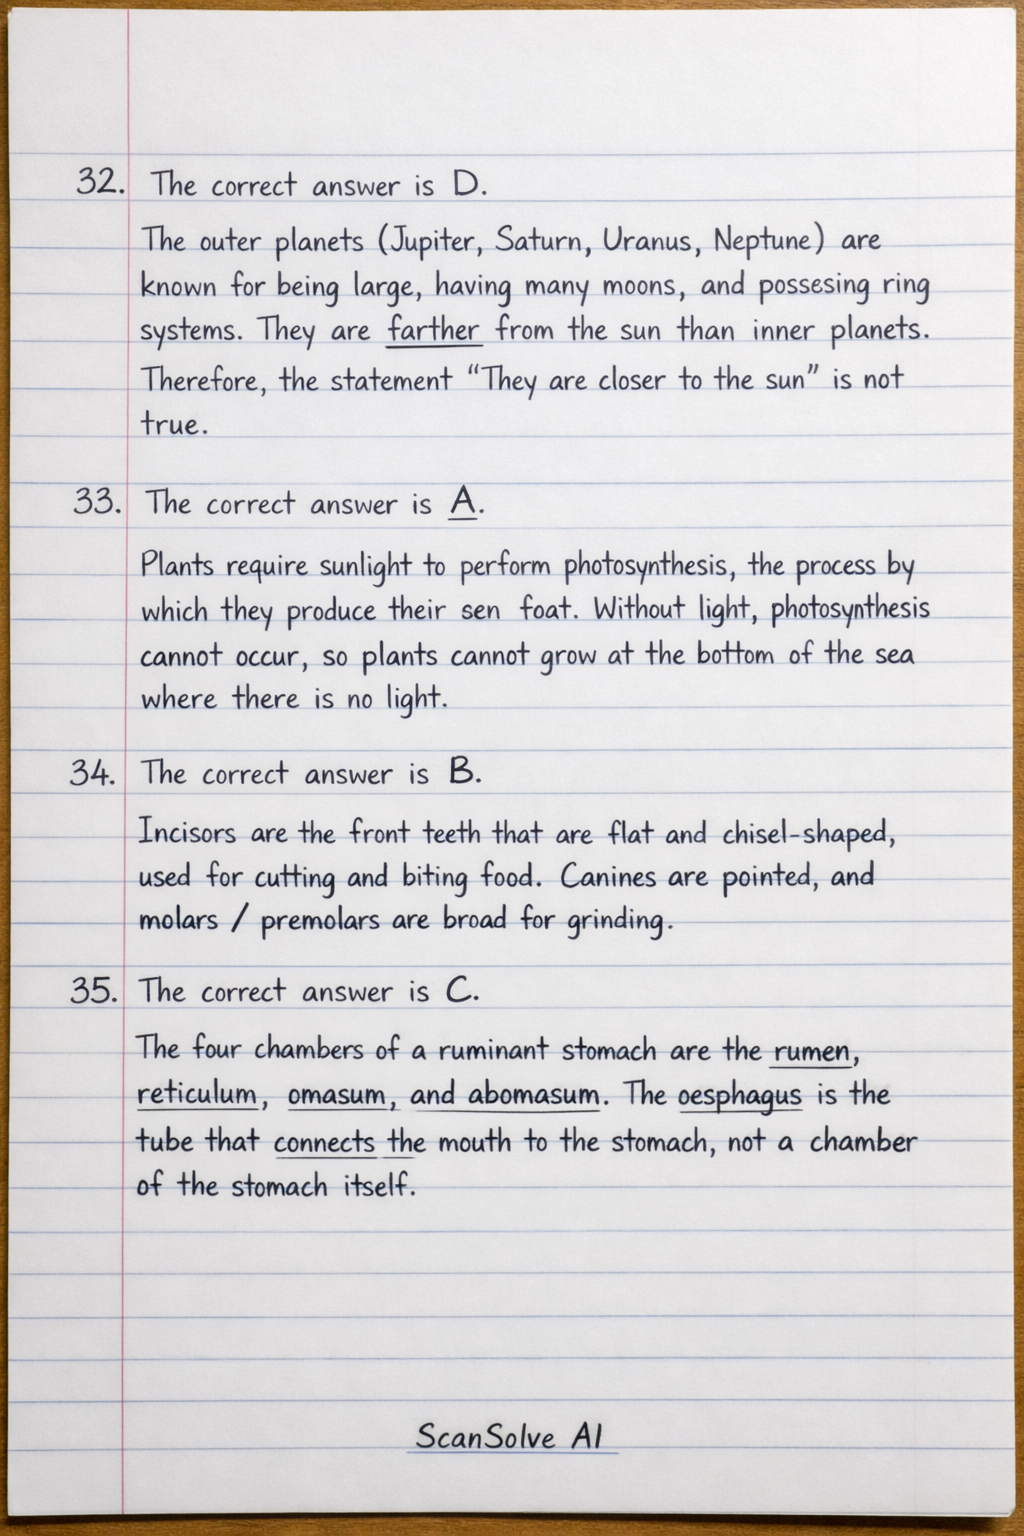 32. The correct answer is D.
The outer planets (Jupiter, Saturn, Uranus, Neptune) are
known for being large, having many moons, and possesing ring
systems. They are farther from the sun than inner planets.
Therefore, the statement “They are closer to the sun” is not
true.
33. The correct answer is A.
Plants require sunlight to perform photosynthesis, the process by
which they produce their sen foat. Without light, photosynthesis
cannot occur, so plants cannot grow at the bottom of the sea
where there is no light.
34. The correct answer is B.
Incisors are the front teeth that are flat and chisel-shaped,
used for cutting and biting food. Canines are pointed, and
molars / premolars are broad for grinding.
35. The correct answer is C.
The four chambers of a ruminant stomach are the rumen,
reticulum, omasum, and abomasum. The oesphagus is the
tube that connects the mouth to the stomach, not a chamber
of the stomach itself.
ScanSolve AI